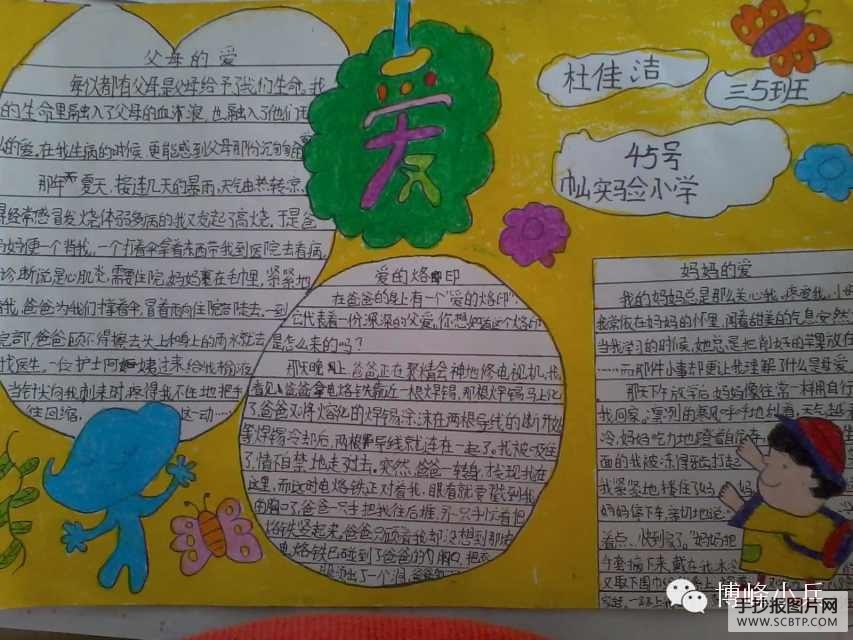 父母的爱
每个都有父母是父母给予了我们生命。我
的生命里融入了父母的血
的爱。在我生病的时候,更能感到父母那份沉
那年夏天,接连几天的暴雨,天气由热转凉,
经常感冒发烧体弱多病的我又发起了高烧。于是爸
妈便一个背我,一个打着伞拿着东西带我到医院去看病,
诊断说是心肌炎,需要住院,妈妈裹在毛巾里,紧紧地
我,爸爸为我们撑着伞,冒着雨向住院部跑去。一到
院部,爸爸顾不得擦去头上和身上的雨水就去
找医生。一位护士阿姨过来给我
当针尖向我刺来时,疼得我不住地把手
往回缩。这一动……
爱
杜佳洁
三5班
45号
实验小学
爱的烙印
在爸爸的身上有一个"爱的烙印"。
它代表着一份深深的父爱,你想知道这个烙印
是怎么来的吗?
那天晚上,爸爸正在聚精会神地修电视机,我
看见爸爸拿电烙铁靠近一根焊锡,那根焊锡马上化
了,爸爸又将熔化的焊锡涂沫在两根导线的断开处
等焊锡冷却后,两根导线就连在一起了。我被吸住
了,情不禁地走过去。突然,爸爸一转身,才发现我在
这里,而这时电烙铁正对着我,眼看就要戳到我
的胸口了,爸爸一只手把我往后推,另一只手忙着把
烙铁竖起来,爸爸只顾着我,却没想到那
电烙铁已碰到了爸爸的胸口,把衣
出了一个洞,
妈妈的爱
我的妈妈总是那么关心我,疼爱我,小
我常依在妈妈的怀里,闻着甜美的气息安然
当我学习的时候,她总是把削好的苹果放在
……而那件小事却更让我理解了什么是母爱
那天下午放学后,妈妈像往常一样用自行
我回家。凛冽的寒风呼呼地刮着,天气越
冷,妈妈吃力地蹬着自行
面的我被冻得牙齿打起
我紧紧地搂住了妈
妈妈停车,亲切地
着点,快到了。"妈妈把
下来,戴在我
又取下围巾
博峰小兵
手抄报图片网
WWW.SCBTP.COM